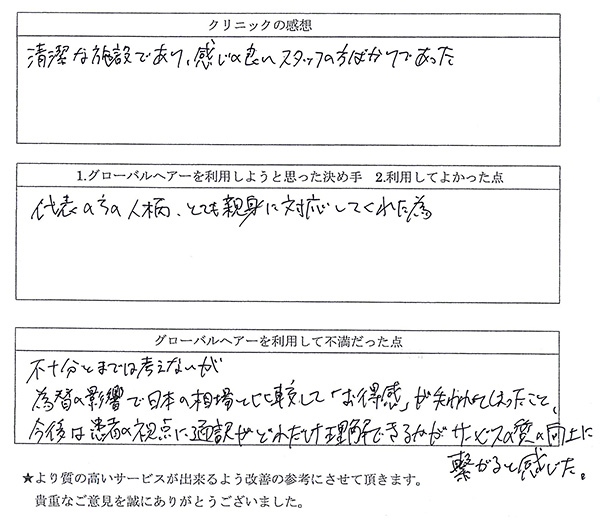 クリニックの感想
清潔な施設であり、感じの良いスタッフの方ばかりであった
1.グローバルヘアーを利用しようと思った決め手　2.利用してよかった点
代表の方の人柄、とても親身に対応してくれた為
グローバルヘアーを利用して不満だった点
不十分とまでは考えないが
為替の影響で日本の相場と比較して「お得感」が失われてしまったこと、
今後は患者の視点に通訳がどれだけ理解できるかがサービスの質の向上に
繋がると感じた。
★より質の高いサービスが出来るよう改善の参考にさせて頂きます。
貴重なご意見を誠にありがとうございました。